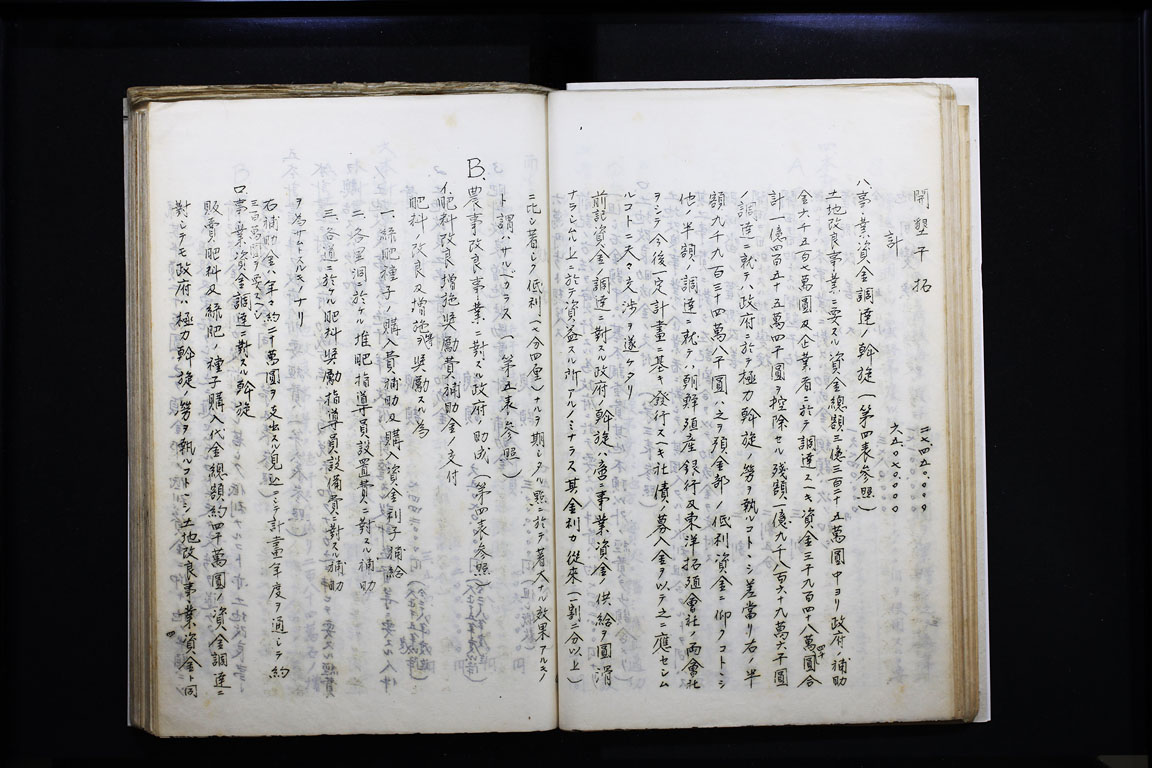 開墾干拓 二七、四五〇、〇〇〇
計 六五、〇七〇、〇〇〇
ハ、事業資金調達ノ斡旋(第四表参照)
土地改良事業ニ要スル資金總額三億三百二十五萬圓中ヨリ政府補助
金六千五百七萬圓及企業者ニ於テ調達スヘキ資金三千九百四十八萬四千圓合
計一億四百五十五萬四千圓ヲ控除セル殘額一億九千八百六十九萬六千圓
ノ調達ニ就テハ政府ニ於テ極力斡旋ノ勞ヲ執ルコトトシ差當リ右ノ半
額九千九百三十四萬八千圓ハ之ヲ預金部ノ低利資金ニ仰クコトトシ
他ノ半額ノ調達ニ就テハ朝鮮殖産銀行及東洋拓殖會社ノ両會社
ヲシテ今後一定計畫ニ基キ發行スヘキ社債ノ募入金ヲ以テ之ニ應セシム
ルコトニ夫々交渉ヲ遂ケタリ
前記資金ノ調達ニ對スル政府ノ斡旋ハ啻ニ事業資金ノ供給ヲ圓滑
ナラシムル上ニ於テ資益スル所アルノミナラス其金利カ從來(一割二分以上)
ニ比シ著シク低利(七分四厘)ナルヲ期シタル點ニ於テ著大ナル效果アルモノ
ト謂ハサルヘカラス(第五表参照)
B、農事改良事業ニ對スル政府ノ助成(第四表参照)
イ、肥料改良増施奬勵費補助金ノ交付
肥料ノ改良及増施ヲ奬勵スル為
一、綠肥種子ノ購入費補助及購入資金利子補給
二、各里洞ニ於ケル堆肥指導員設置費ニ對スル補助
三、各道ニ於ケル肥料奬勵指導員設備費ニ對スル補助
ヲ為サムトスルモノナリ
右補助金ハ年々約二十萬圓ヲ支出スル見込ニシテ計畫年度ヲ通シテ約
三百萬圓ヲ要スヘシ
ロ、事業資金調達ニ對スル斡旋
販賣肥料及綠肥ノ種子購入代金總額約四千萬圓ノ資金調達ニ
對シテモ政府ハ極力斡旋ノ勞ヲ執ルコトトシ土地改良事業資金ト同